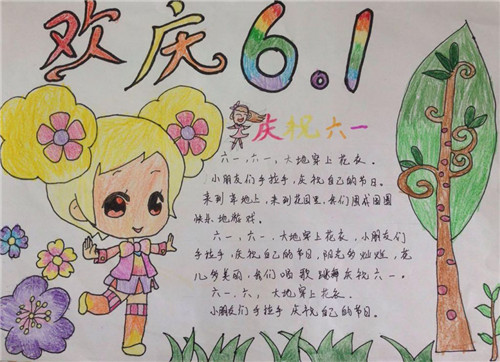 欢庆6.1
庆祝六一
六一,六一,大地穿上花衣。
小朋友们手拉手,庆祝自己的节日。
来到草地上,来到花园里,我们围成圆圈
快乐地游戏。
六一,六一,大地穿上花衣,小朋友们
手拉手,庆祝自己的节日,阳光多灿烂,花
儿多美丽,我们唱歌跳舞庆祝六一。
六一,六一,大地穿上花衣。
小朋友们手拉手 庆祝自己的节日。